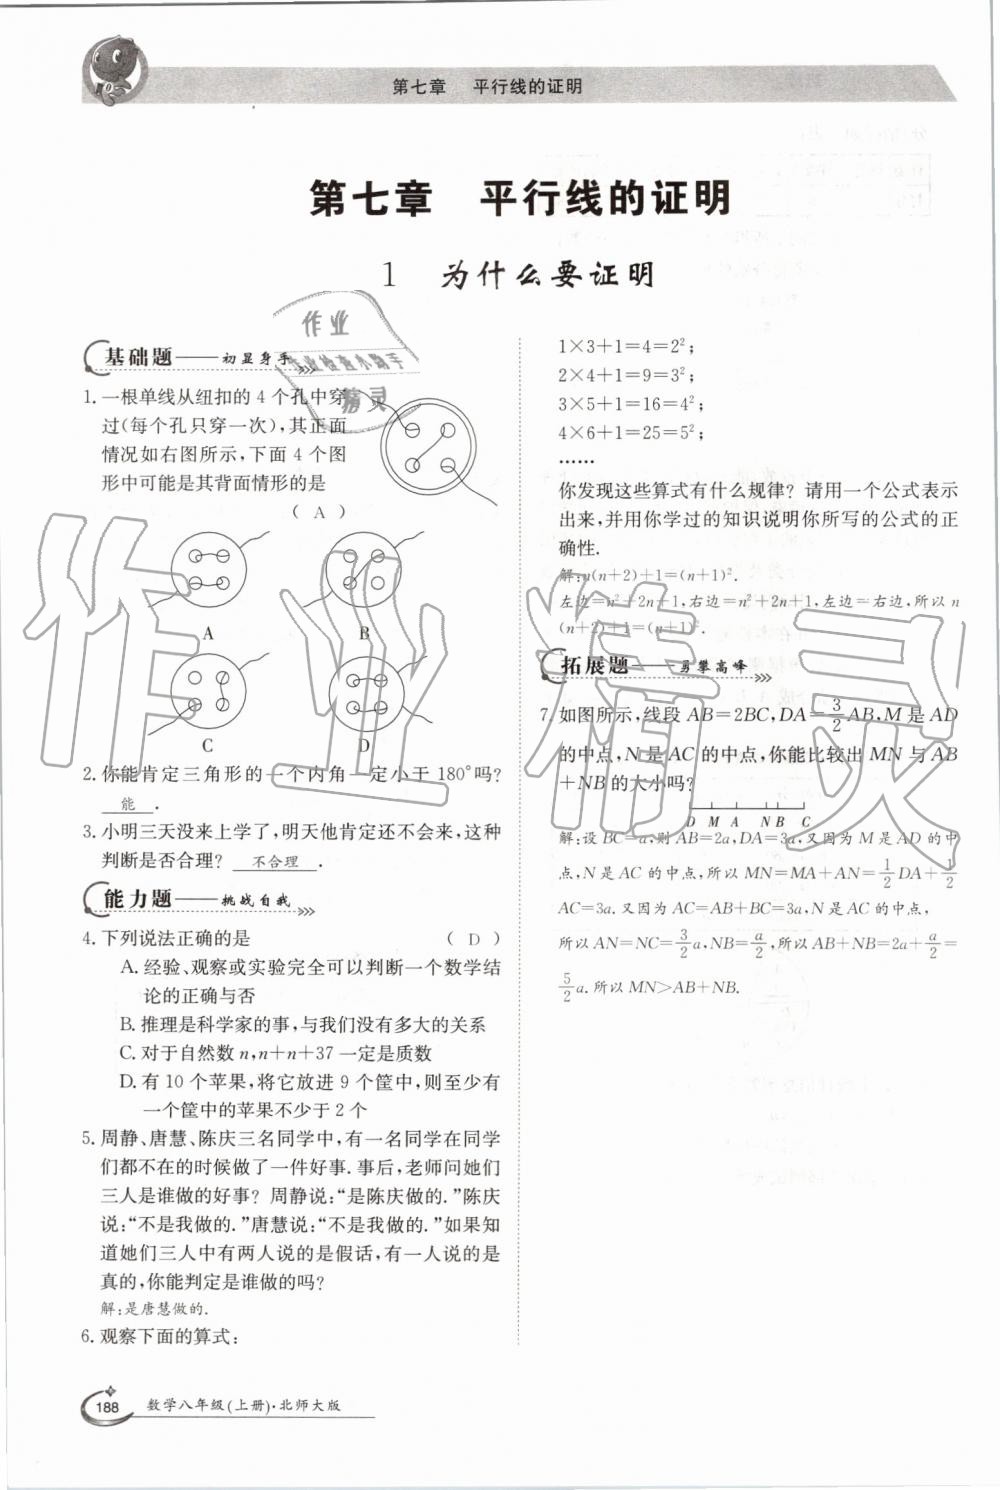 第七章 平行线的证明
第七章 平行线的证明
1 为什么要证明
基础题——初显身手
1. 一根单线从纽扣的 4 个孔中穿
过(每个孔只穿一次),其正面
情况如右图所示,下面 4 个图
形中可能是其背面情形的是
( A )
A
B
C
D
2. 你能肯定三角形的一个内角一定小于 180°吗?
能 .
3. 小明三天没来上学了,明天他肯定还不会来,这种
判断是否合理? 不合理 .
能力题——挑战自我
4. 下列说法正确的是 ( D )
A. 经验、观察或实验完全可以判断一个数学结
论的正确与否
B. 推理是科学家的事,与我们没有多大的关系
C. 对于自然数 n,n+n+37 一定是质数
D. 有 10 个苹果,将它放进 9 个筐中,则至少有
一个筐中的苹果不少于 2 个
5. 周静、唐慧、陈庆三名同学中,有一名同学在同学
们都不在的时候做了一件好事. 事后,老师问她们
三人是谁做的好事? 周静说:“是陈庆做的.”陈庆
说:“不是我做的.”唐慧说:“不是我做的.”如果知
道她们三人中有两人说的是假话,有一人说的是
真的,你能判定是谁做的吗?
解:是唐慧做的.
6. 观察下面的算式:
1×3+1=4=2²;
2×4+1=9=3²;
3×5+1=16=4²;
4×6+1=25=5²;
……
你发现这些算式有什么规律? 请用一个公式表示
出来,并用你学过的知识说明你所写的公式的正
确性.
解:n(n+2)+1=(n+1)².
左边=n²+2n+1,右边=n²+2n+1,左边=右边,所以 n
(n+2)+1=(n+1)².
拓展题——勇攀高峰
7. 如图所示,线段 AB=2BC,DA=3/2AB,M 是 AD
的中点,N 是 AC 的中点,你能比较出 MN 与 AB
+NB 的大小吗?
D M A N B C
解:设 BC=a,则 AB=2a,DA=3a,又因为 M 是 AD 的中
点,N 是 AC 的中点,所以 MN=MA+AN=1/2DA+1/2
AC=3a. 又因为 AC=AB+BC=3a,N 是 AC 的中点,
所以 AN=NC=3/2a,NB=a/2,所以 AB+NB=2a+a/2=
5/2a. 所以 MN>AB+NB.
188 数学八年级(上册)·北师大版
作业
作业检查小助手
精灵
作业精灵